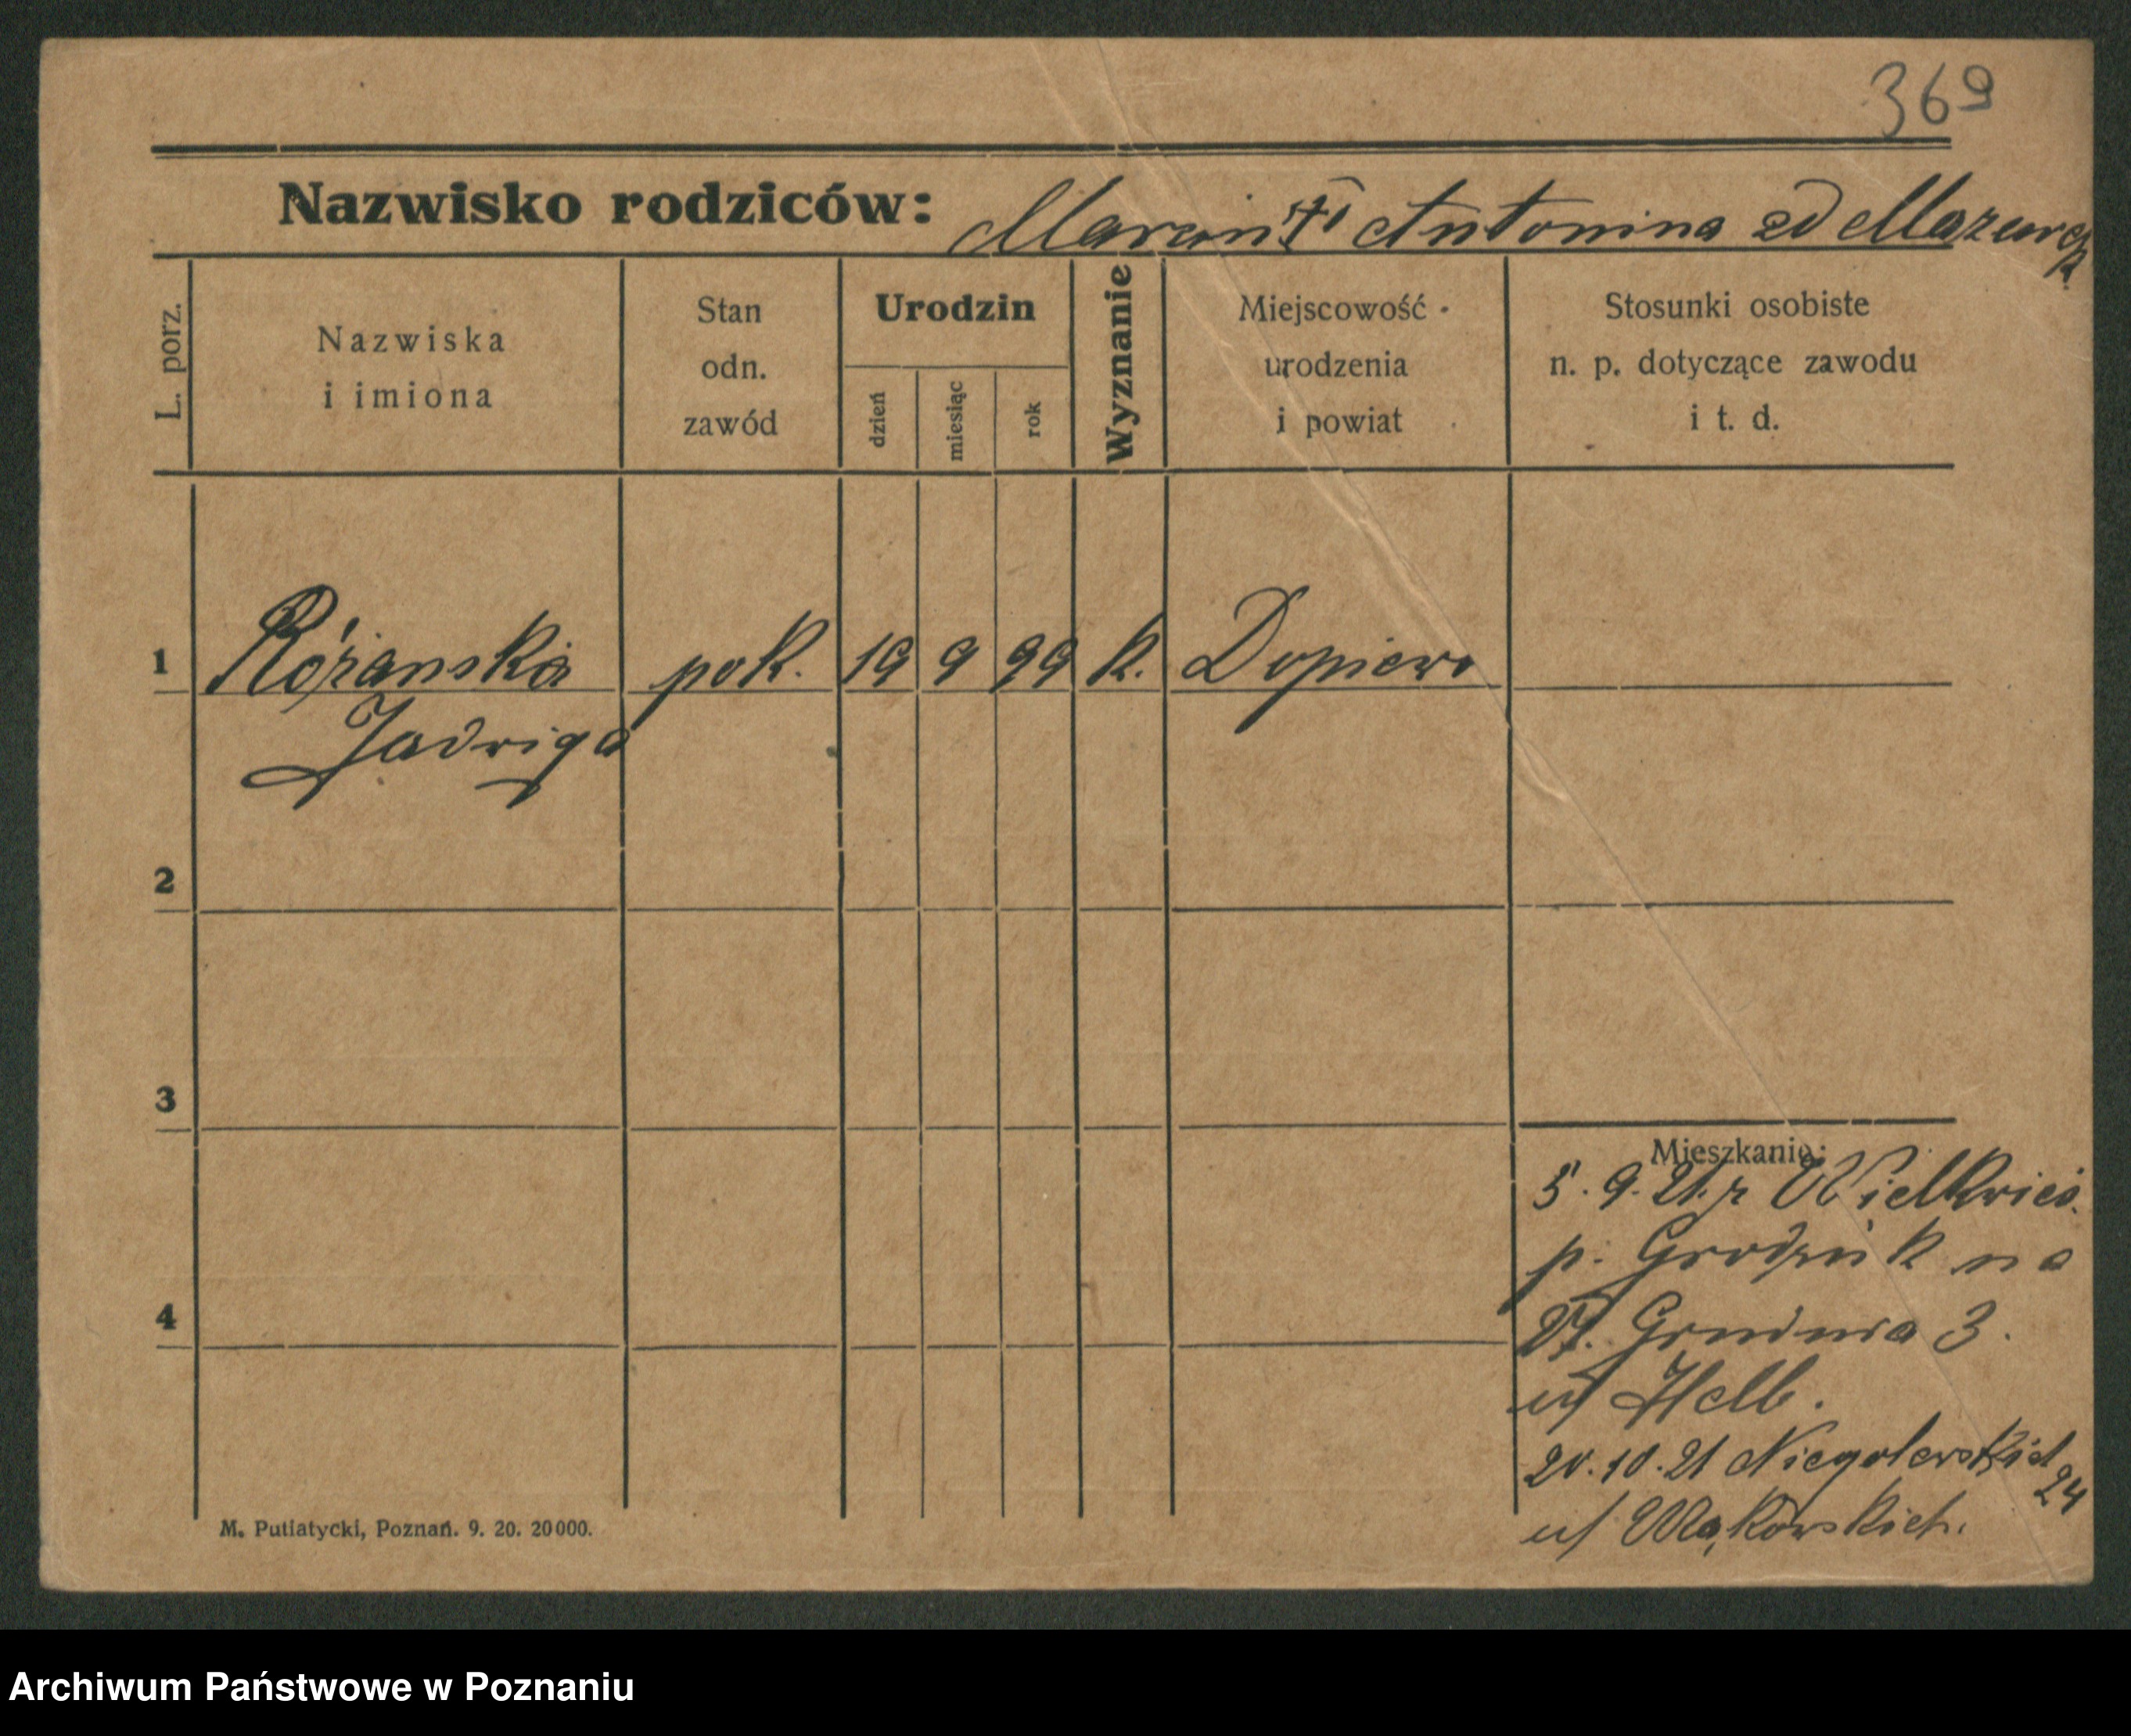 369
Nazwisko rodziców: Marcin Antonina zd Mazurek
L. porz.
Nazwiska
i imiona
Stan
odn.
zawód
Urodzin
dzień
miesiąc
rok
Wyznanie
Miejscowość
urodzenia
i powiat
Stosunki osobiste
n. p. dotyczące zawodu
i t. d.
1 Różanska pok. 19 9 99 k. Dopiewo
Jadwiga
2
3
4
Mieszkanie:
5. 9. 21. z Wielkwieś.
p. Grodzisk na
27. Grudnia 3.
u/ Helb.
20. 10. 21 Niegolewskich 24
u/ Mąkowskich.
M. Putiatycki, Poznań. 9. 20. 20000.
Archiwum Państwowe w Poznaniu